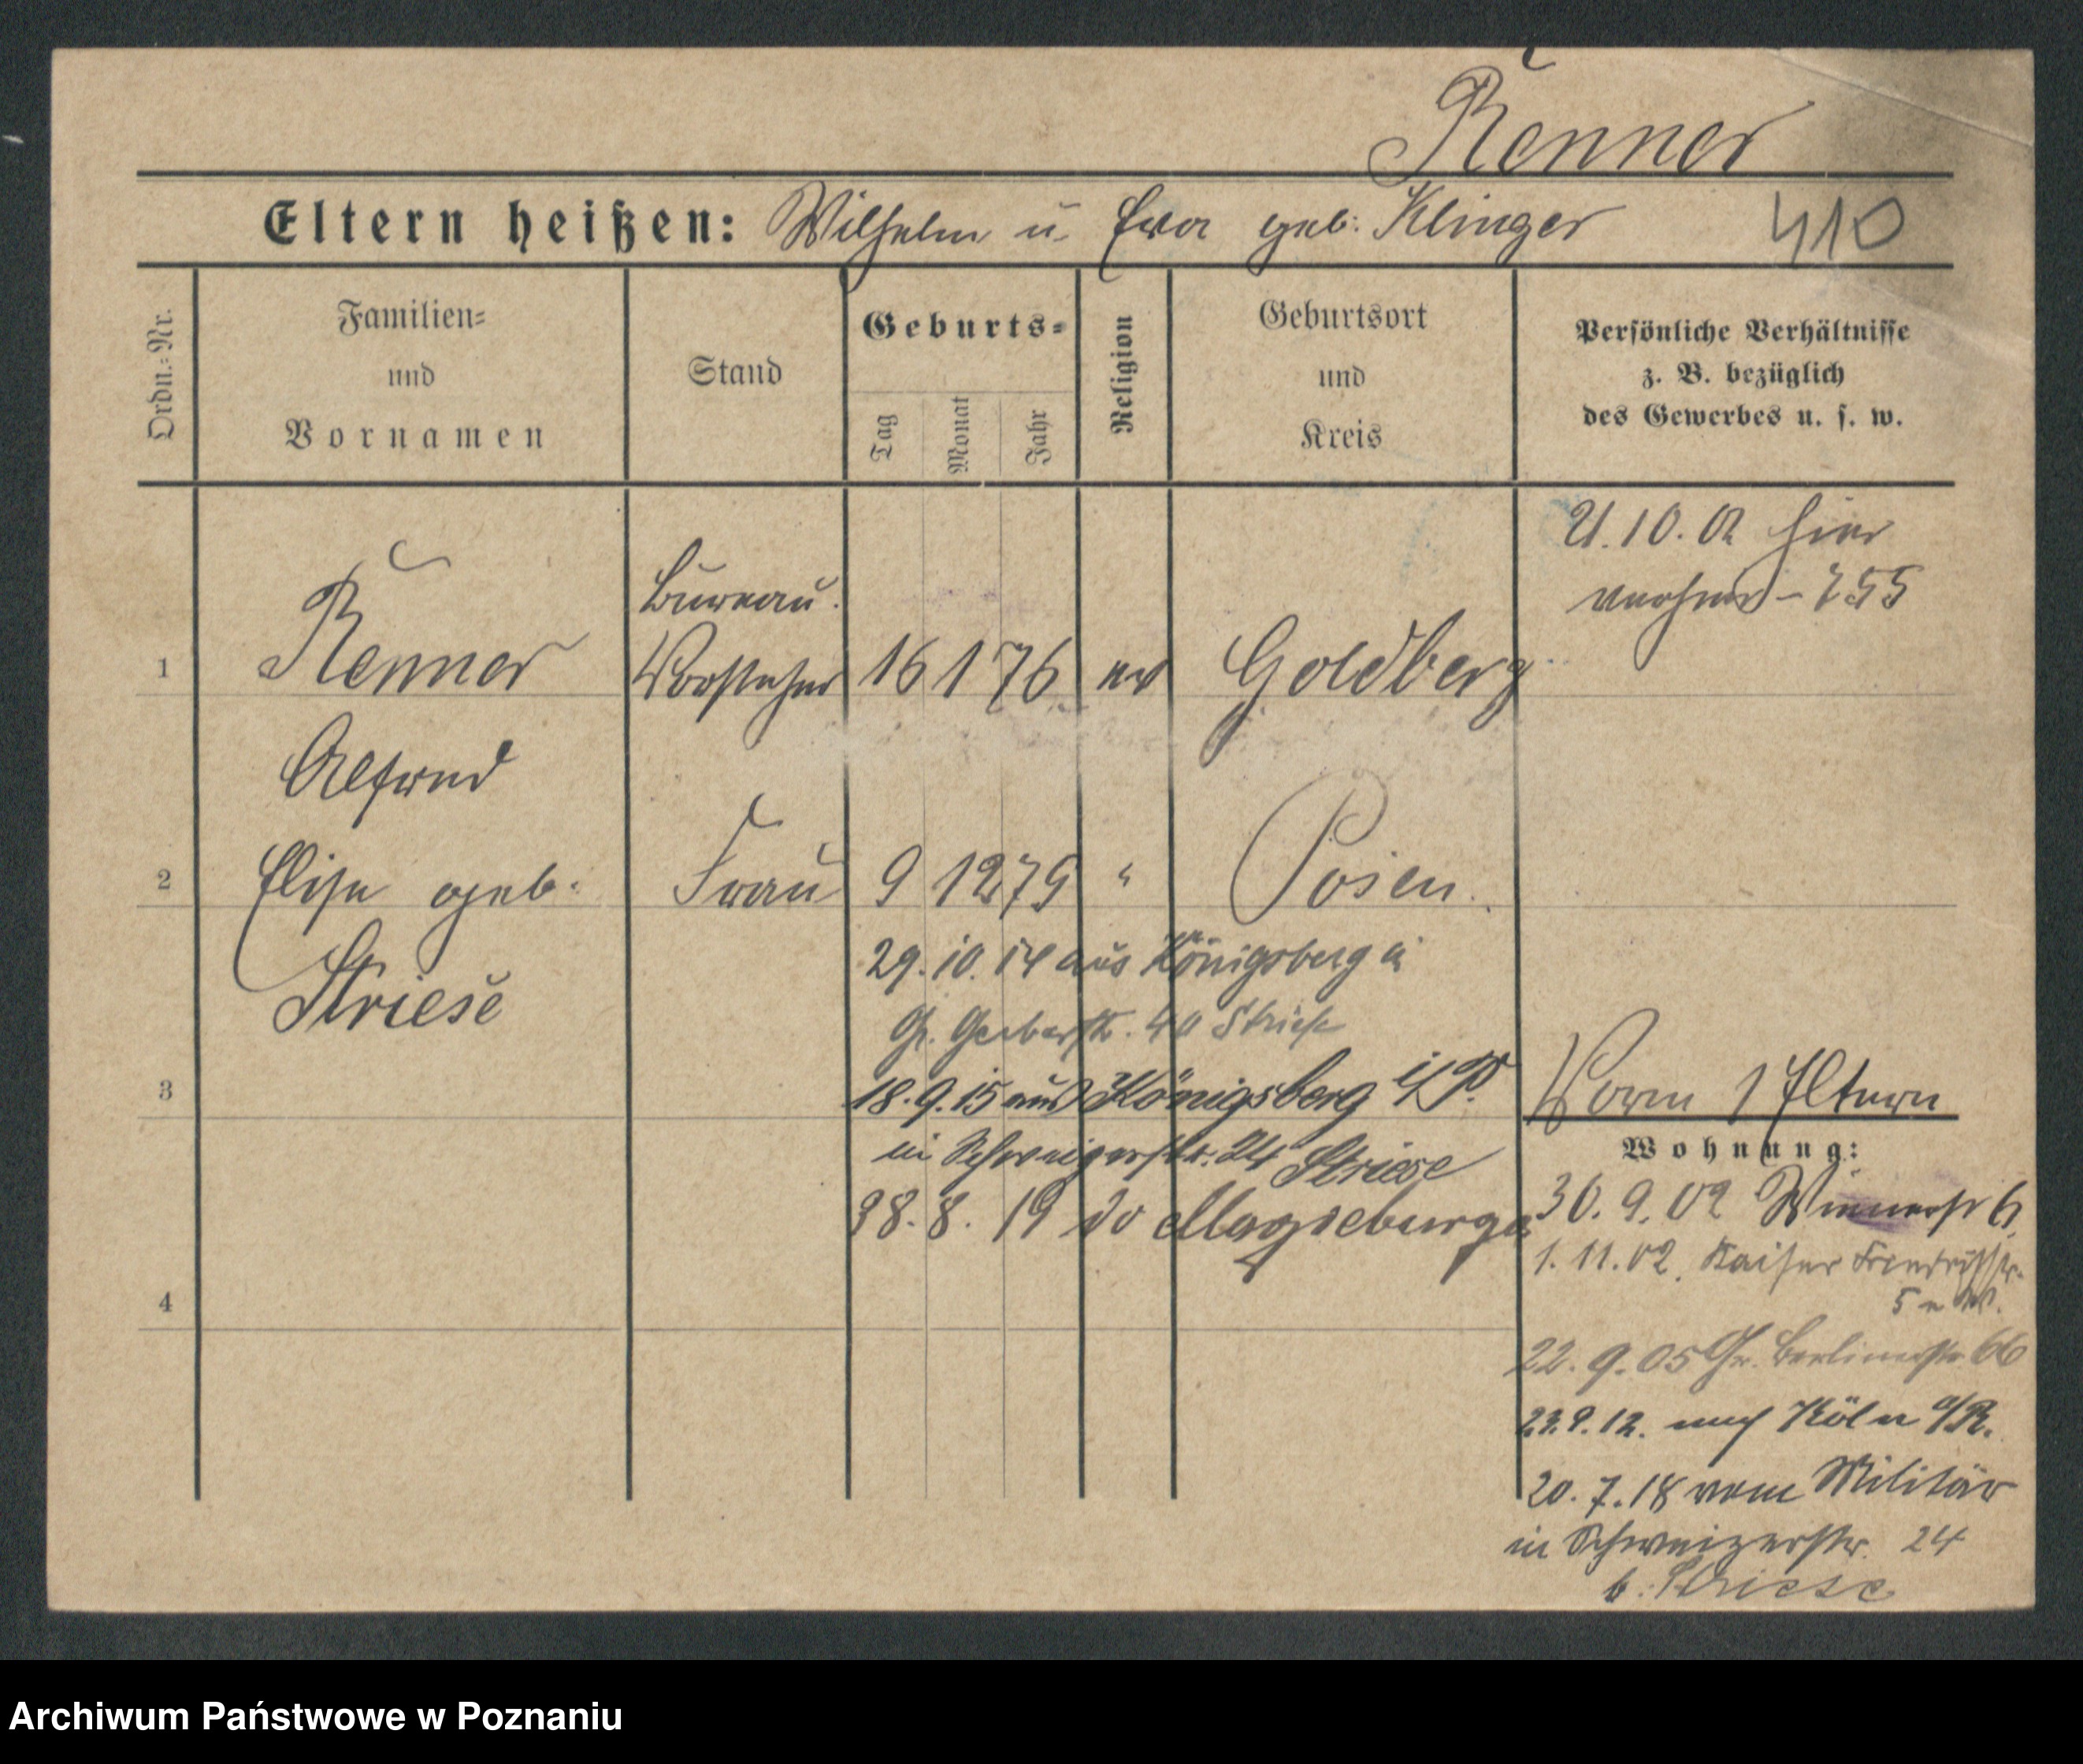 Renner
Eltern heißen: Wilhelm u. Eva geb. Klinger 410
Ordn.-Nr.
Familien-
und
Vornamen
Stand
Geburts-
Tag
Monat
Jahr
Religion
Geburtsort
und
Kreis
Persönliche Verhältnisse
z. B. bezüglich
des Gewerbes u. s. w.
21.10.02 hier
1
Renner
Alfred
Bureau
Vorsteher
16 1 76 ev Goldberg
2
Elise geb.
Striese
Frau
9 12 79 " Posen.
29.10.14 aus Königsberg in
Gr. Gerberstr. 40 Striese
3
18.9.15 aus Königsberg i/P.
in Schweizerstr. 24 Striese
8.19 Magdeburg
4
Vorm 1 Eltern
Wohnung:
30.9.02
1.11.02. Kaiser Friedrichstr.
5
22.9.05 Gr. Berlinerstr. 66
nach Köln a/R.
20.7.18 vom Militär
in Schweizerstr. 24
b. Striese
Archiwum Państwowe w Poznaniu